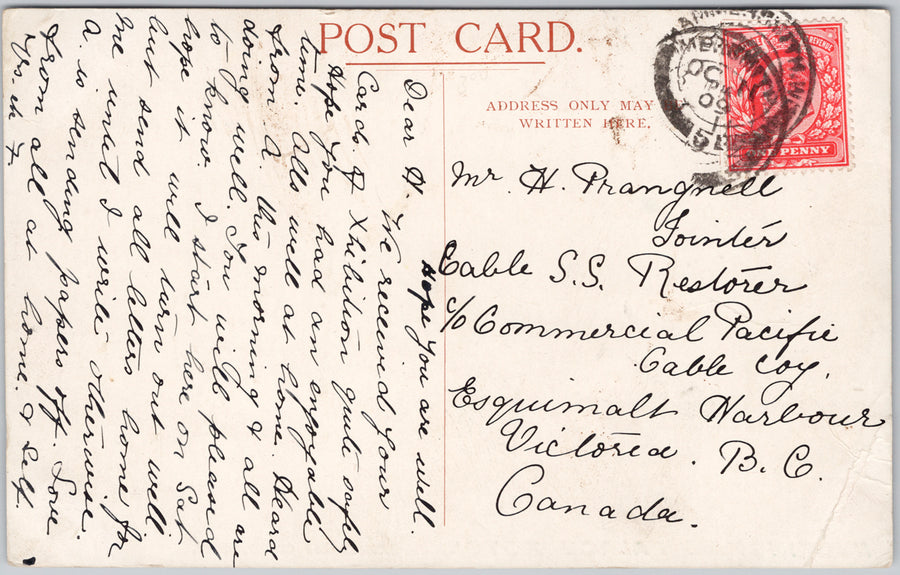 POST CARD.
ADDRESS ONLY MAY BE
WRITTEN HERE.
Hope you are well.
Dear H. We received your
Card of Xhibition quite safely
Hope you had an enjoyable
time. Alls well at home. Heard
from A. this morning & all are
doing well. You will pleased
to know I start here on Sat
hope it will turn out well
but send all letters home for
me until I write otherwise.
A. is sending papers off. Love
from all at home & self.
Yrs.
Mr. H. Prangnell
Jointer
Cable S.S. Restorer
c/o Commercial Pacific
Cable Coy.
Esquimalt Harbour
Victoria. B.C.
Canada.
HAMMERSMITH
OC
09
REVENUE
ONE PENNY